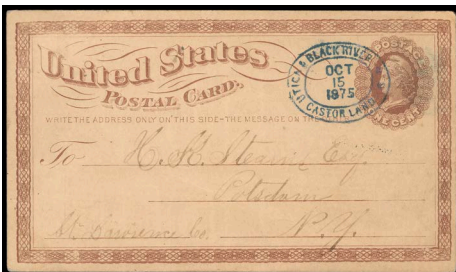 United States
POSTAL CARD.
WRITE THE ADDRESS ONLY ON THIS SIDE-THE MESSAGE ON THE
UTICA & BLACK RIVER
OCT
15
1875
CASTORLAND
POSTAGE
ONE CENT
To H. H. Esq.
Potsdam
St Lawrence Co. N.Y.